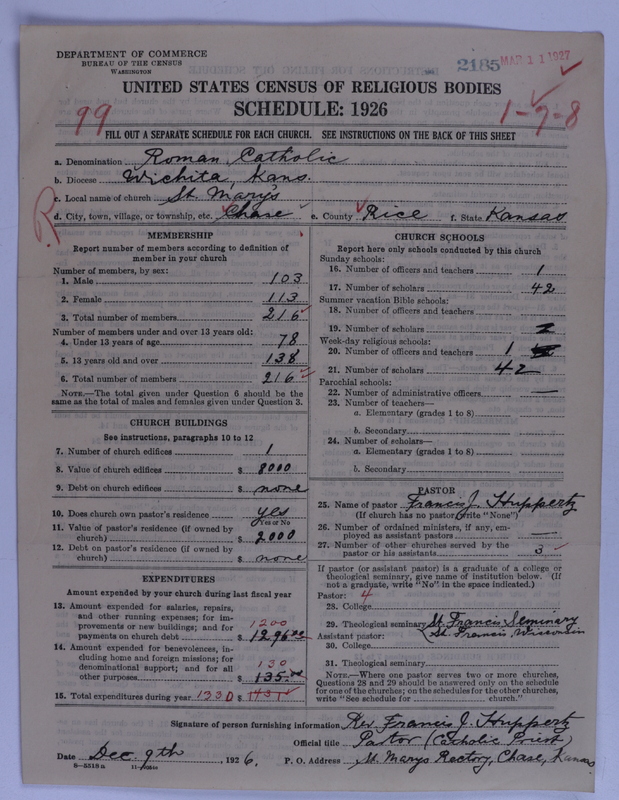 DEPARTMENT OF COMMERCE
BUREAU OF THE CENSUS
WASHINGTON
2185 MAR 11 1927
UNITED STATES CENSUS OF RELIGIOUS BODIES
SCHEDULE: 1926
99
1-7-8
FILL OUT A SEPARATE SCHEDULE FOR EACH CHURCH. SEE INSTRUCTIONS ON THE BACK OF THIS SHEET
a. Denomination Roman Catholic
b. Diocese Wichita, Kans.
c. Local name of church St. Mary's
d. City, town, village, or township, etc. Chase e. County Rice f. State Kansas
R
MEMBERSHIP
Report number of members according to definition of
member in your church
Number of members, by sex:
1. Male 103
2. Female 113
3. Total number of members 216
Number of members under and over 13 years old:
4. Under 13 years of age 78
5. 13 years old and over 138
6. Total number of members 216
NOTE.—The total given under Question 6 should be
same as the total of males and females given under Question 3.
CHURCH BUILDINGS
See instructions, paragraphs 10 to 12
7. Number of church edifices 1
8. Value of church edifices $ 8000
9. Debt on church edifices $ none
10. Does church own pastor's residence yes
Yes or No
11. Value of pastor's residence (if owned by
church) $ 2000
12. Debt on pastor's residence (if owned by
church) $ none
EXPENDITURES
Amount expended by your church during last fiscal year
13. Amount expended for salaries, repairs,
and other running expenses; for im-
provements or new buildings; and for
payments on church debt $ 1296.00
1200
14. Amount expended for benevolences, in-
cluding home and foreign missions; for
denominational support; and for all
other purposes $ 135.00
130
15. Total expenditures during year 1330 $ 1431
CHURCH SCHOOLS
Report here only schools conducted by this church
Sunday schools:
16. Number of officers and teachers 1
17. Number of scholars 42
Summer vacation Bible schools:
18. Number of officers and teachers
19. Number of scholars
Week-day religious schools:
20. Number of officers and teachers 1
21. Number of scholars 42
Parochial schools:
22. Number of administrative officers —
23. Number of teachers—
a. Elementary (grades 1 to 8)
b. Secondary
24. Number of scholars—
a. Elementary (grades 1 to 8)
b. Secondary
PASTOR
25. Name of pastor Francis J. Huppertz
(If church has no pastor, write "None")
26. Number of ordained ministers, if any, em-
ployed as assistant pastors —
27. Number of other churches served by the
pastor or his assistants 3
If pastor (or assistant pastor) is a graduate of a college or
theological seminary, give name of institution below. (If
not a graduate, write "No" in the space indicated.)
Pastor: 4
28. College
29. Theological seminary St. Francis Seminary
St. Francis, Wisconsin
Assistant pastor:
30. College
31. Theological seminary
NOTE.—Where one pastor serves two or more churches,
Questions 28 and 29 should be answered only on the schedule
for one of the churches; on the schedules for the other churches,
write "See schedule for church."
Signature of person furnishing information Rev. Francis J. Huppertz
Official title Pastor (Catholic Priest)
Date Dec. 9th, 1926. P. O. Address St. Marys Rectory, Chase, Kansas
8-5518a